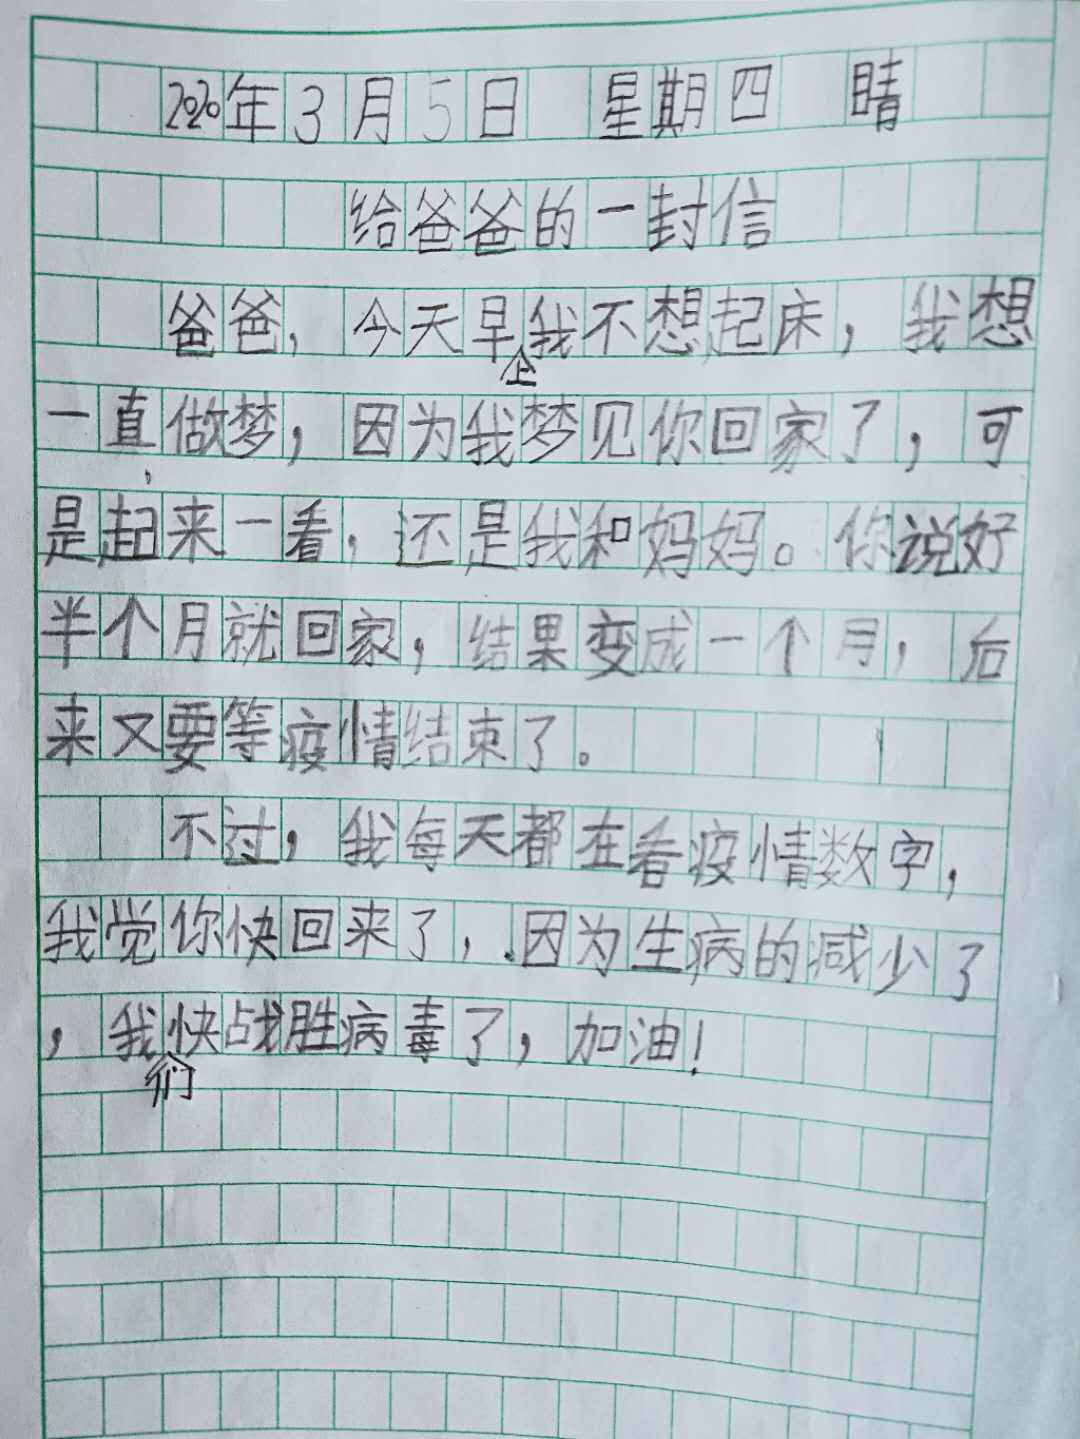 2020年3月5日 星期四 晴
给爸爸的一封信
爸爸,今天早上我不想起床,我想
一直做梦,因为我梦见你回家了,可
是起来一看,还是我和妈妈。你说好
半个月就回家,结果变成一个月,后
来又要等疫情结束了。
不过,我每天都在看疫情数字,
我觉你快回来了,因为生病的减少了
,我们快战胜病毒了,加油!